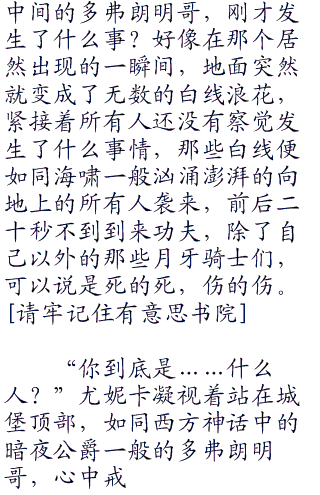 中间的多弗朗明哥，刚才发
生了什么事？好像在那个居
然出现的一瞬间，地面突然
就变成了无数的白线浪花，
紧接着所有人还没有察觉发
生了什么事情，那些白线便
如同海啸一般汹涌澎湃的向
地上的所有人袭来，前后二
十秒不到到来功夫，除了自
己以外的那些月牙骑士们，
可以说是死的死，伤的伤。
[请牢记住有意思书院]
“你到底是……什么
人？”尤妮卡凝视着站在城
堡顶部，如同西方神话中的
暗夜公爵一般的多弗朗明
哥，心中戒